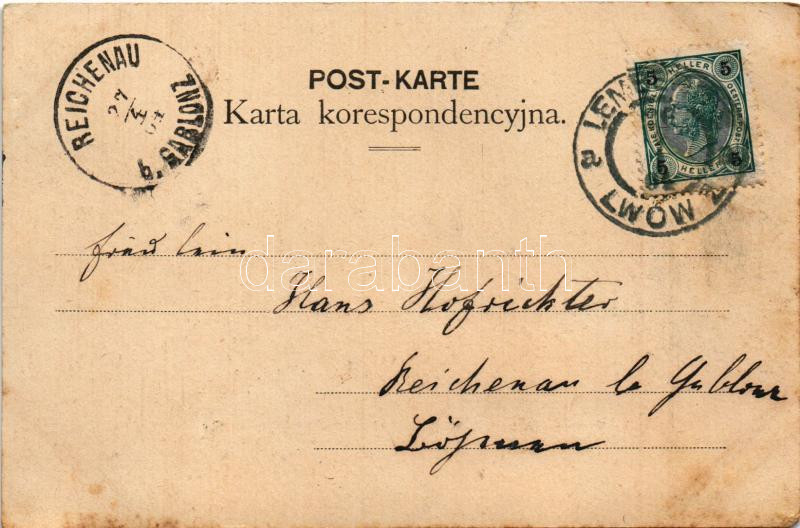 REICHENAU
27
4
04
b. GABLONZ
POST-KARTE
Karta korespondencyjna.
LEM
LWÓW
5 HELLER 5
5 HELLER 5
fräulein
Hans Hofrichter
Reichenau b Gablonz
Böhmen
darabanth